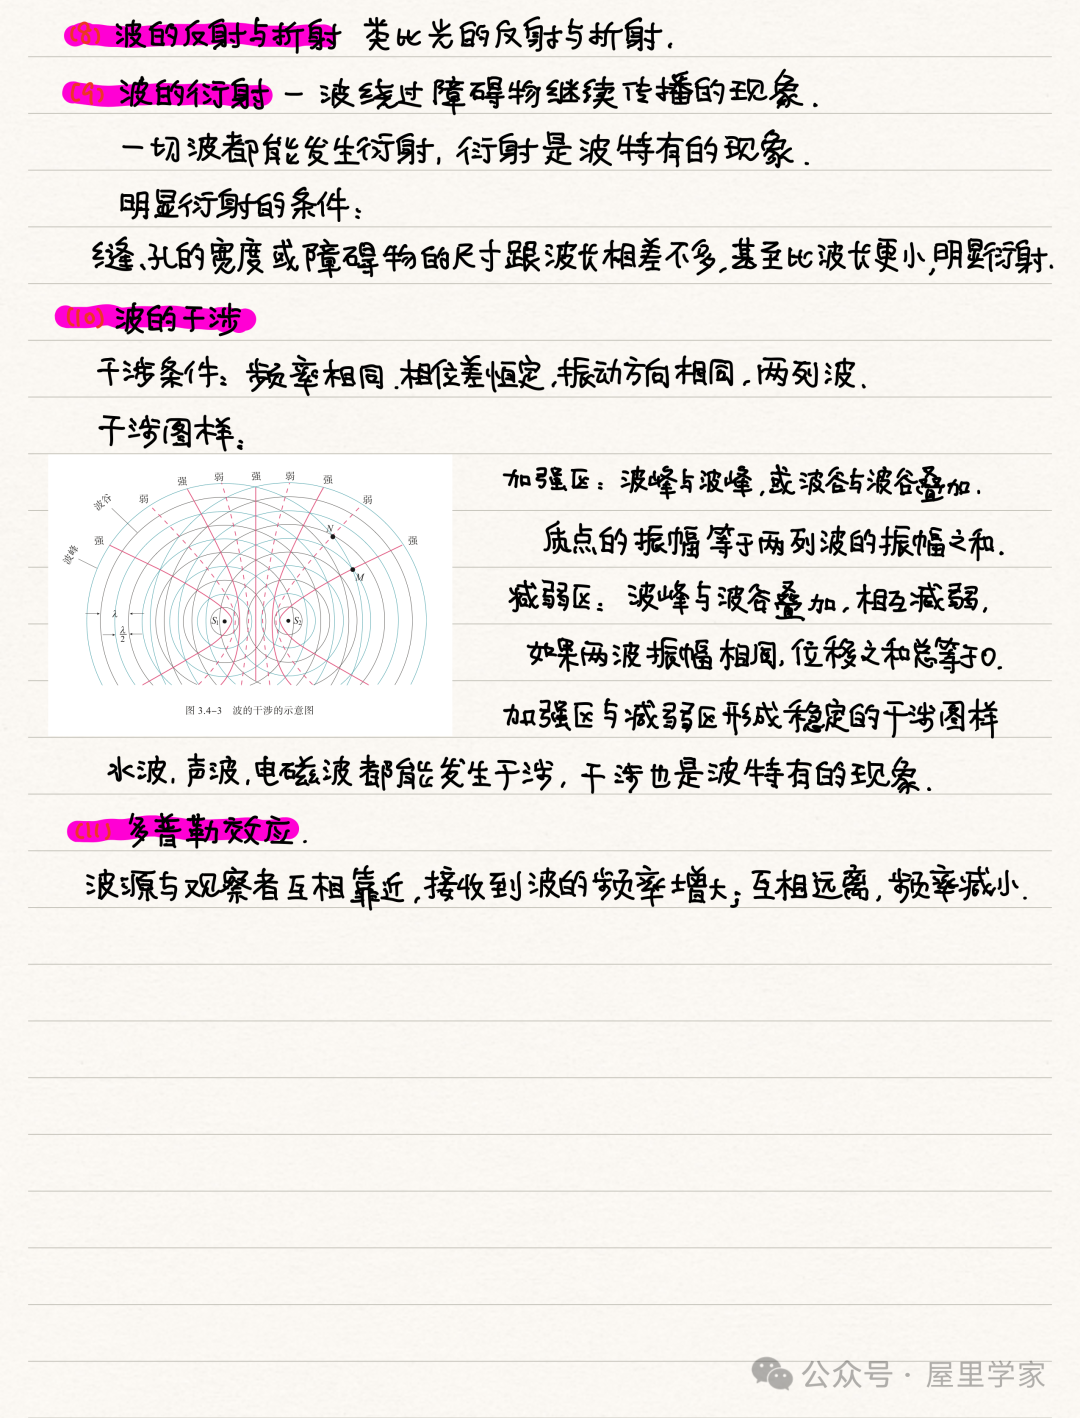 (8) 波的反射与折射 类比光的反射与折射.
(9) 波的衍射 — 波绕过障碍物继续传播的现象.
一切波都能发生衍射, 衍射是波特有的现象.
明显衍射的条件:
缝、孔的宽度或障碍物的尺寸跟波长相差不多,甚至比波长更小,明显衍射.
(10) 波的干涉
干涉条件: 频率相同.相位差恒定,振动方向相同,两列波.
干涉图样:
强 弱 强 弱 强
波谷 弱 弱
波峰 强 强
N
M
λ
λ/2
S₁ S₂
图 3.4-3 波的干涉的示意图
加强区: 波峰与波峰,或波谷与波谷叠加.
质点的振幅等于两列波的振幅之和.
减弱区: 波峰与波谷叠加,相互减弱,
如果两波振幅相同,位移之和总等于0.
加强区与减弱区形成稳定的干涉图样
水波,声波,电磁波都能发生干涉, 干涉也是波特有的现象.
(11) 多普勒效应.
波源与观察者互相靠近,接收到波的频率增大;互相远离,频率减小.
公众号 · 屋里学家